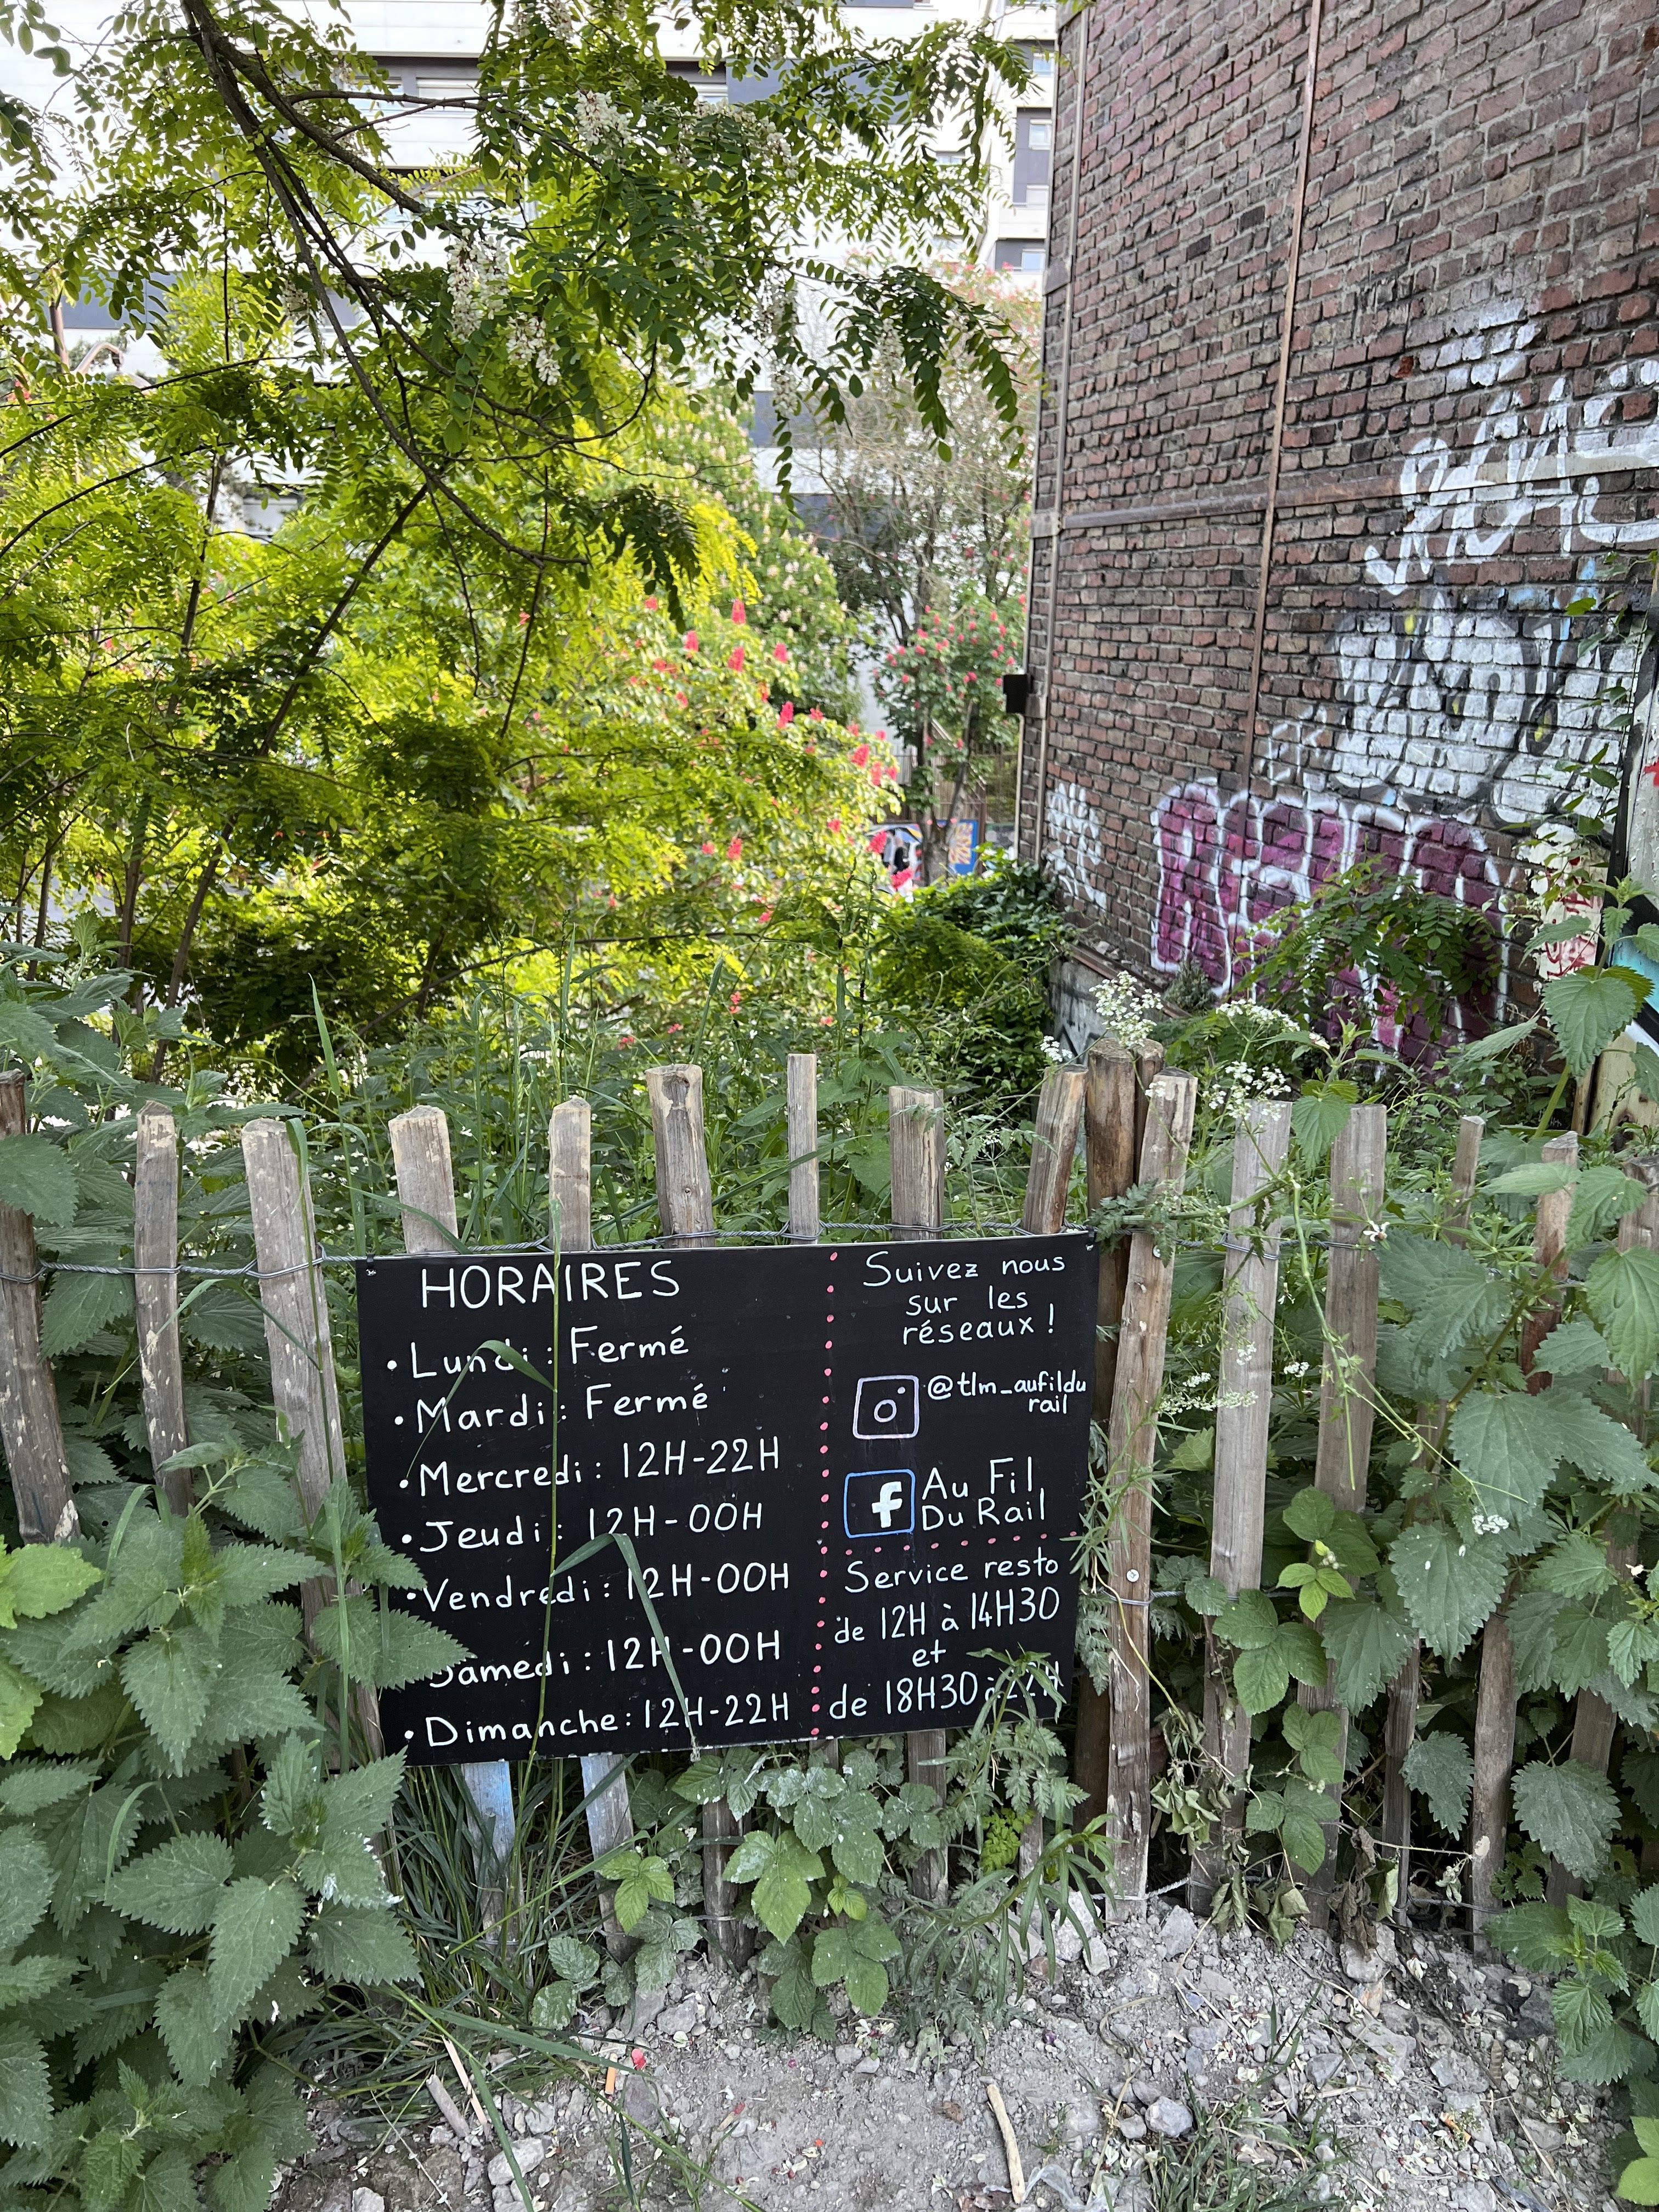 HORAIRES
• Lundi : Fermé
• Mardi : Fermé
• Mercredi : 12H-22H
• Jeudi : 12H-00H
• Vendredi : 12H-00H
Samedi : 12H-00H
• Dimanche : 12H-22H
Suivez nous
sur les
réseaux !
@tlm_aufildu
rail
f Au Fil
Du Rail
Service resto
de 12H à 14H30
et
de 18H30 à 22H